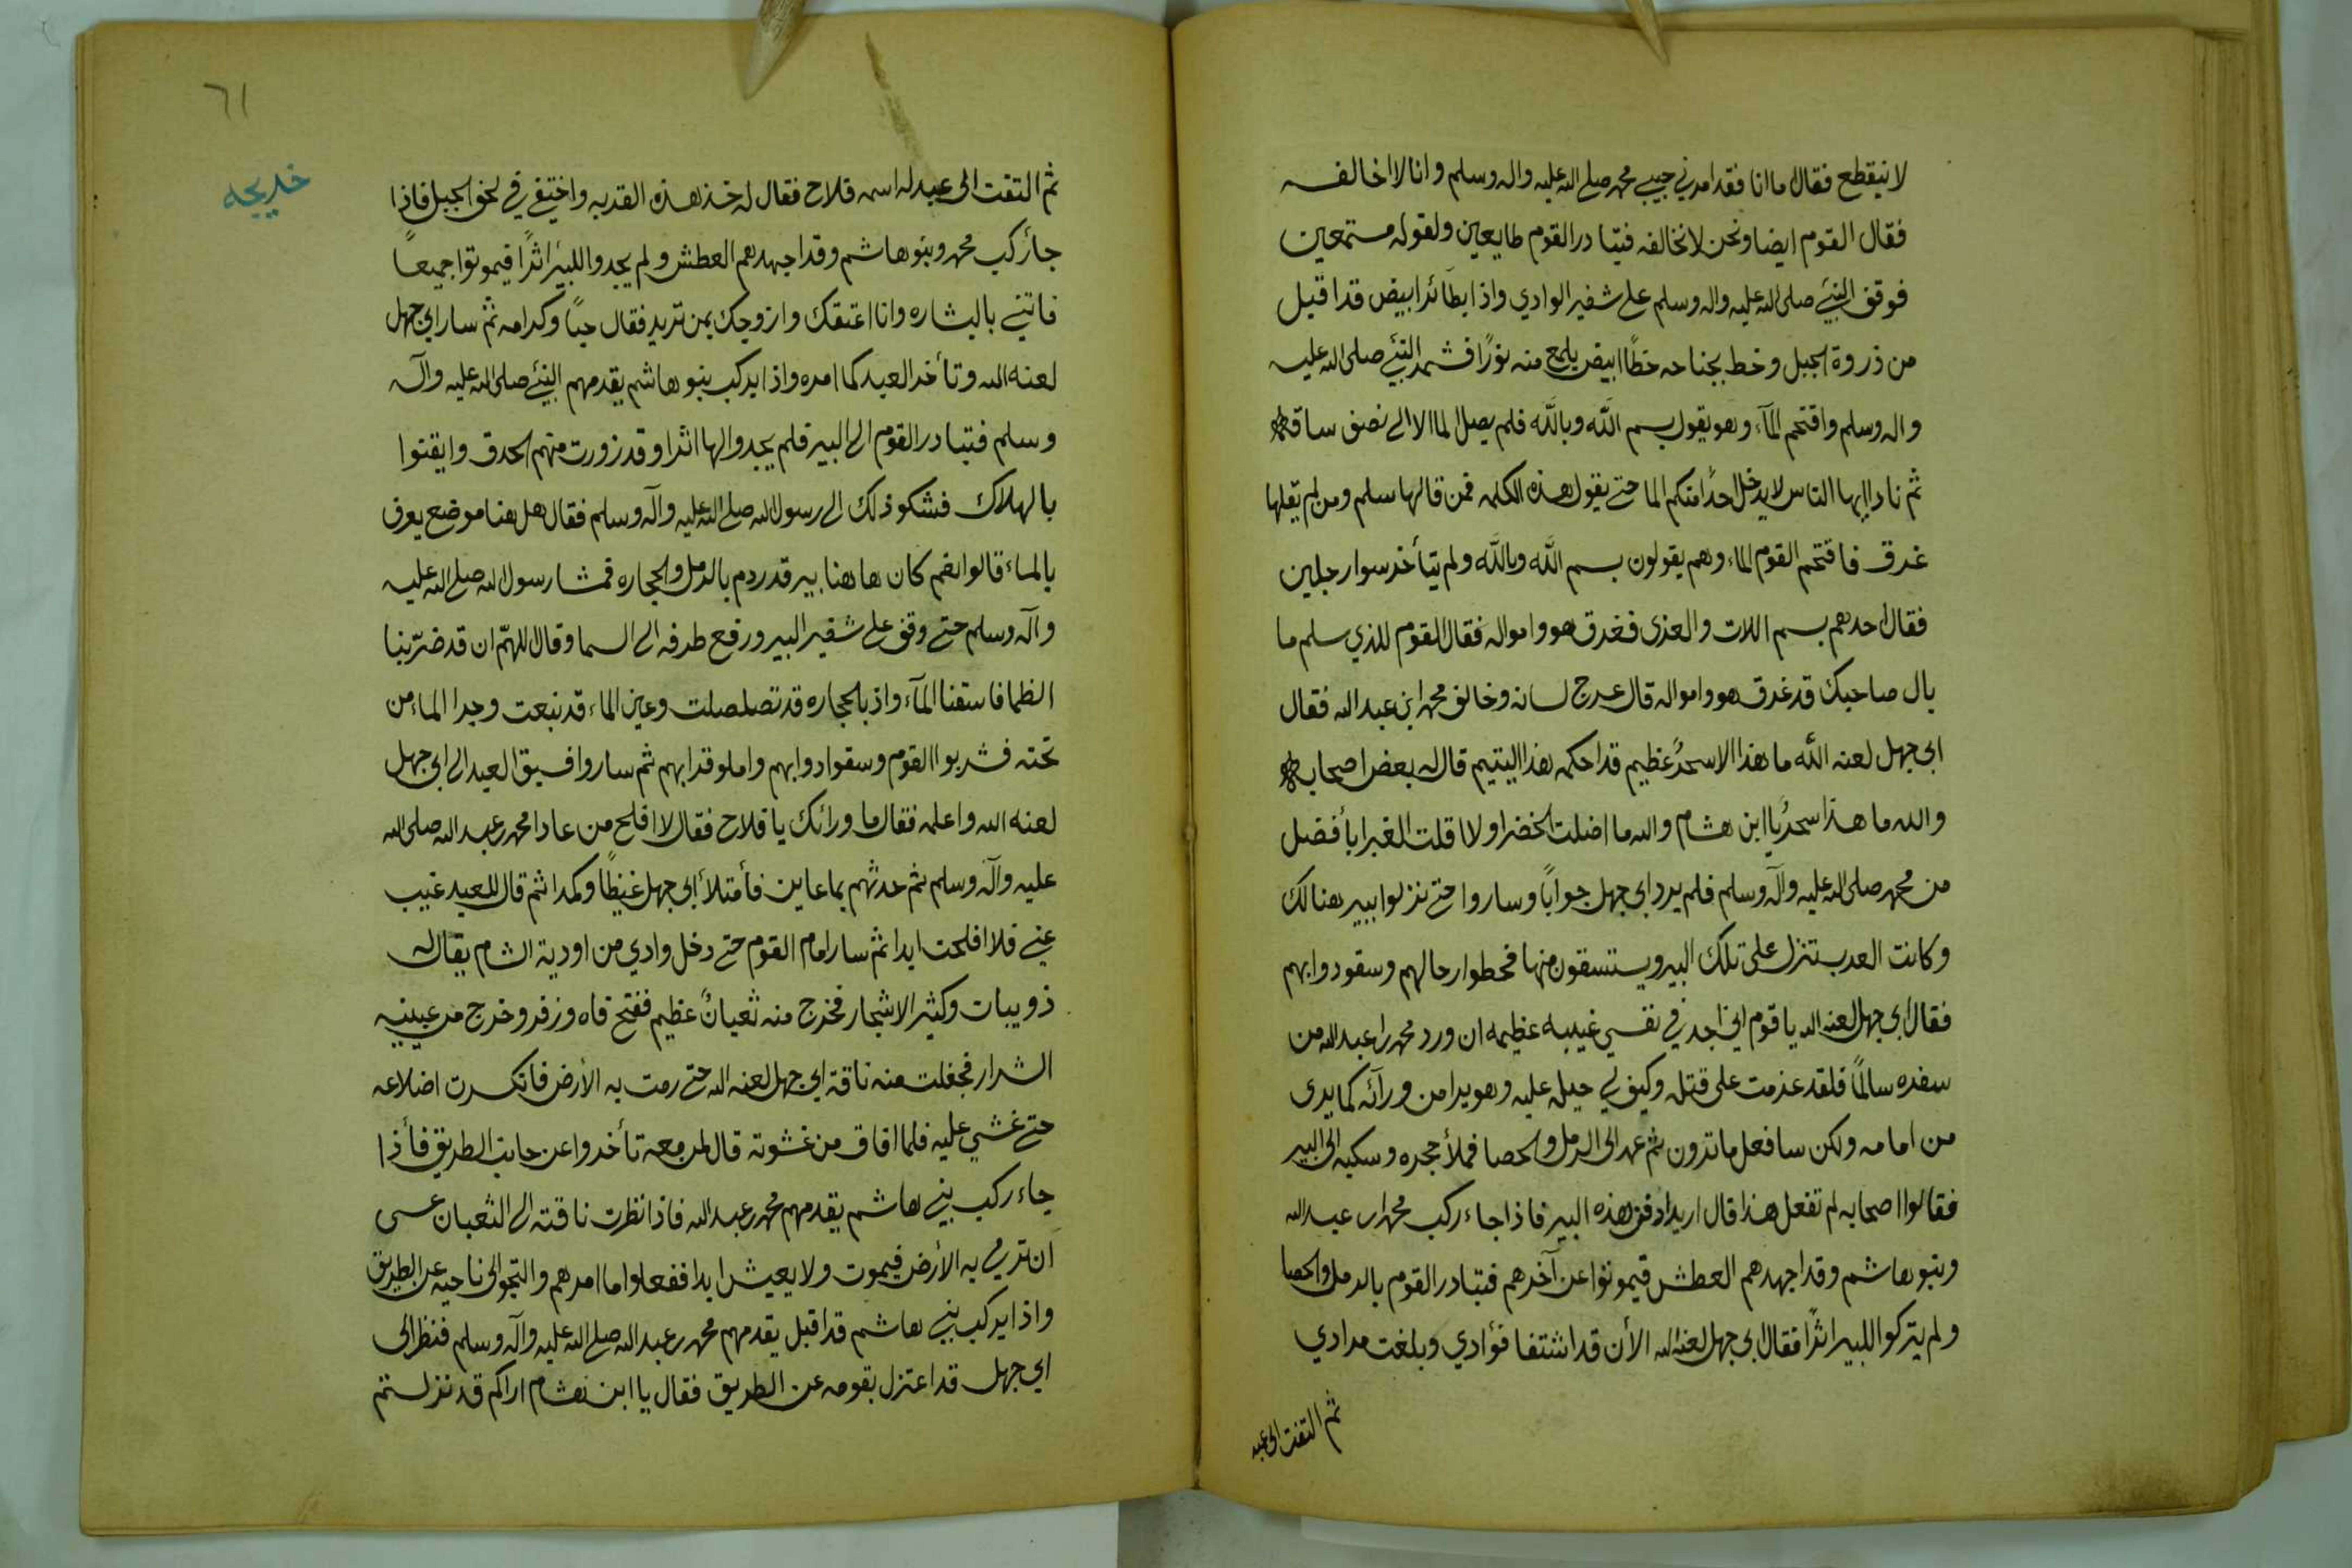 لا نيقطع فقال اما انا فقد امرني حبيبي محمد صلى الله عليه واله وسلم وانا لا اخالفه
فقال القوم ايضا ونحن لا نخالفه فتبادر القوم طايعين ولقوله مستمعين
فوقف النبي صلى الله عليه واله وسلم على شفير الوادي واذا بطائرا ابيض قد اقبل
من ذروة الجبل وخط بجناحه خطًا ابيض يلمع منه نورًا فشمر النبي صلى الله عليه
واله وسلم واقتحم المآء وهو يقول بسم الله وبالله فلم يصل الما الا الى نصف ساقه
ثم نادا ايها الناس لا يدخل احدًا منكم الما حتى يقول هذه الكلمه فمن قالها سلم ومن لم يقلها
غرق فاقتحم القوم الماء وهم يقولون بسم الله وبالله ولم يتأخر سوا رجلين
فقال احدهم بسم اللات والعزى فغرق هو وامواله فقال القوم للذي سلم ما
بال صاحبك قد غرق هو وامواله قال عرج لسانه وخالف محمد ابن عبد الله فقال
ابي جهل لعنه الله ما هذا الا سحرٌ عظيم قد احكمه هذا اليتيم قال له بعض اصحابه
والله ما هذا سحرٌ يا ابن هشام والله ما اضلت الخضرا ولا اقلت الغبرا بأفضل
من محمد صلى الله عليه وآله وسلم فلم يرد ابي جهل جوابًا وساروا حتى نزلوا ببير هنالك
وكانت العرب تنزل على تلك البير ويستسقون منها فحطوا رحالهم وسقو دوابهم
فقال ابي جهل لعنه الله يا قوم اني اجد في نفسي غيبه عظيمه ان ورد محمد ابن عبد الله من
سفره سالمًا فلقد عزمت على قتله وكيف لي حيله عليه وهو يرا من ورآئه كما يرى
من امامه ولكن سافعل ما ترون ثم عمد الى الرمل والحصا فملأ حجره وسكبه الى البير
فقالوا اصحابه لم تفعل هذا قال اريد ادفن هذه البير فاذا جاء ركب محمد ابن عبد الله
وبنو هاشم وقد اجهدهم العطش فيموتوا عن آخرهم فتبادر القوم بالرمل والحصا
ولم يتركوا للبير اثرًا فقال ابي جهل لعنه الله الأن قد اشتفا فؤادي وبلغت مرادي
ثم التفت الى عبد
٦١
خديجه
ثم التفت الى عبد له اسمه فلاح فقال له خذ هذه القربه واختفي في لخف الجبل فاذا
جأ ركب محمد وبنو هاشم وقد اجهدهم العطش ولم يجدوا للبير اثرًا فيموتوا جميعًا
فاتني بالبشاره وانا اعتقك وازوجك بمن تريد فقال حبًا وكرامه ثم سار ابي جهل
لعنه الله وتأخر العبد كما امره واذا بركب بنو هاشم يقدمهم النبي صلى الله عليه وآله
وسلم فتبادر القوم الى البير فلم يجدوا لها اثرا وقد زورت منهم الحدق وايقنوا
بالهلاك فشكو ذلك الى رسول الله صلى الله عليه وآله وسلم فقال هل هنا موضع يعرف
بالماء قالوا نعم كان هاهنا بير قد ردم بالرمل والحجاره فمشا رسول الله صلى الله عليه
وآله وسلم حتى وقف على شفير البير ورفع طرفه الى السما وقال اللهمّ ان قد ضرّ بنا
الظما فاسقنا المآء واذ بالحجاره قد تصلصلت وعين الماء قد نبعت وجرا الماء من
تحته فشربوا القوم وسقوا دوابهم واملو قرابهم ثم ساروا فسبق العبد الى ابي جهل
لعنه الله واعلمه فقال ما ورائك يا فلاح فقال لا افلح من عادا محمد بن عبد الله صلى الله
عليه وآله وسلم ثم حدثهم بما عاين فأمتلأ ابي جهل غيظًا وكمدا ثم قال للعبد غيب
عني فلا افلحت ابدا ثم سار امام القوم حتى دخل وادي من اودية الشام يقال له
ذويبات وكثير الاشجار فخرج منه ثعبانٌ عظيم ففتح فاه وزفر وخرج من عينيه
الشرار فجفلت منه ناقة ابي جهل لعنه الله حتى رمت به الأرض فانكسرت اضلاعه
حتى غشي عليه فلما افاق من غشوته قال لمن معه تأخروا عن جانب الطريق فأذا
جاء ركب بني هاشم يقدمهم محمد بن عبد الله فاذا نظرت ناقته الى الثعبان عسى
ان ترمي به الأرض فيموت ولا يعيش ابدا ففعلوا ما امرهم والتجو الى ناحيه عن الطريق
واذا بركب بني هاشم قد اقبل يقدمهم محمد بن عبد الله صلى الله عليه وآله وسلم فنظر الى
ابي جهل قد اعتزل بقومه عن الطريق فقال يا ابن هشام اراكم قد نزلتم